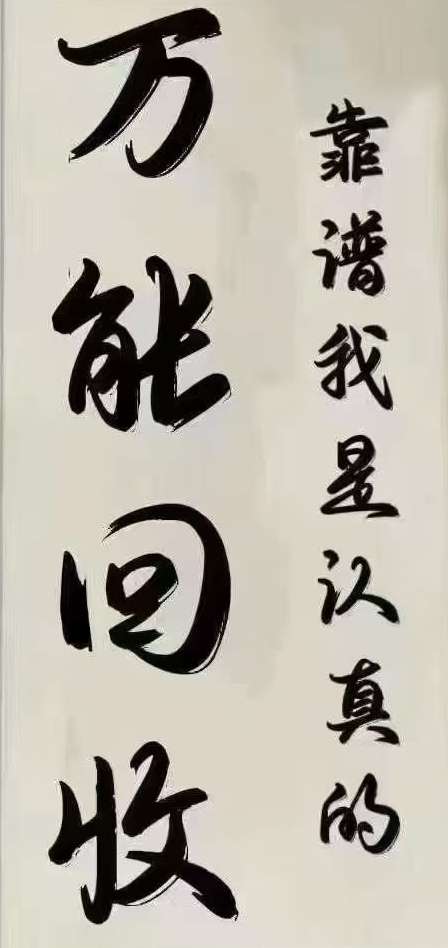 靠谱我是认真的
万能回收